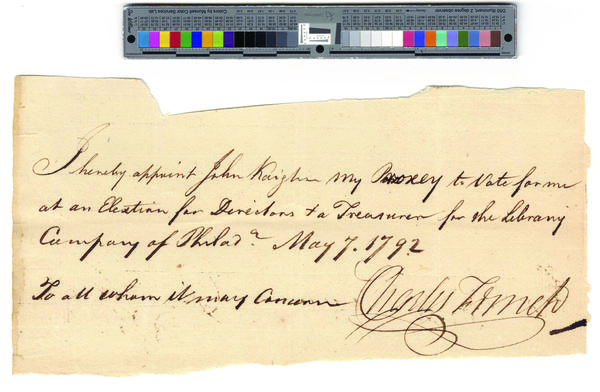 I hereby appoint John Kaighn my Proxey to Vote for me
at an Election for Directors & a Treasurer for the Library
Company of Philad.ª May 7. 1792
To all whom it may Concern Charles French